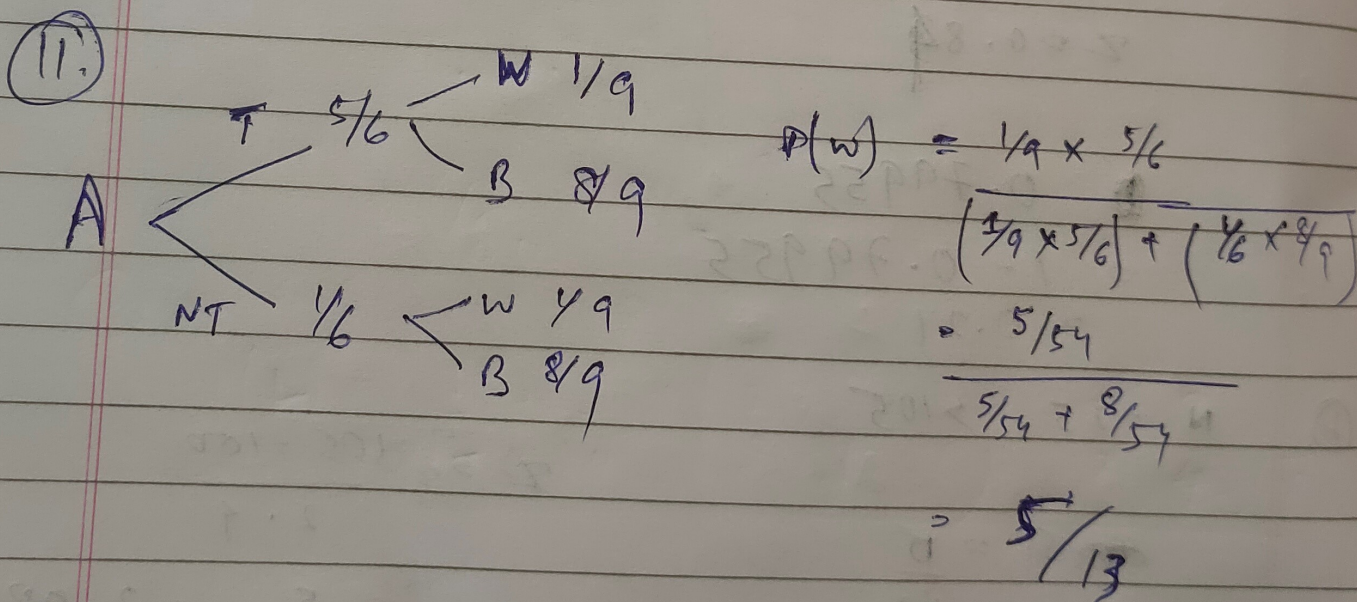 11.
T 5/6 W 1/9
B 8/9
A
NT 1/6 W 1/9
B 8/9
P(W) = 1/9 x 5/6
(1/9 x 5/6) + (1/6 x 8/9)
= 5/54
5/54 + 8/54
= 5/13